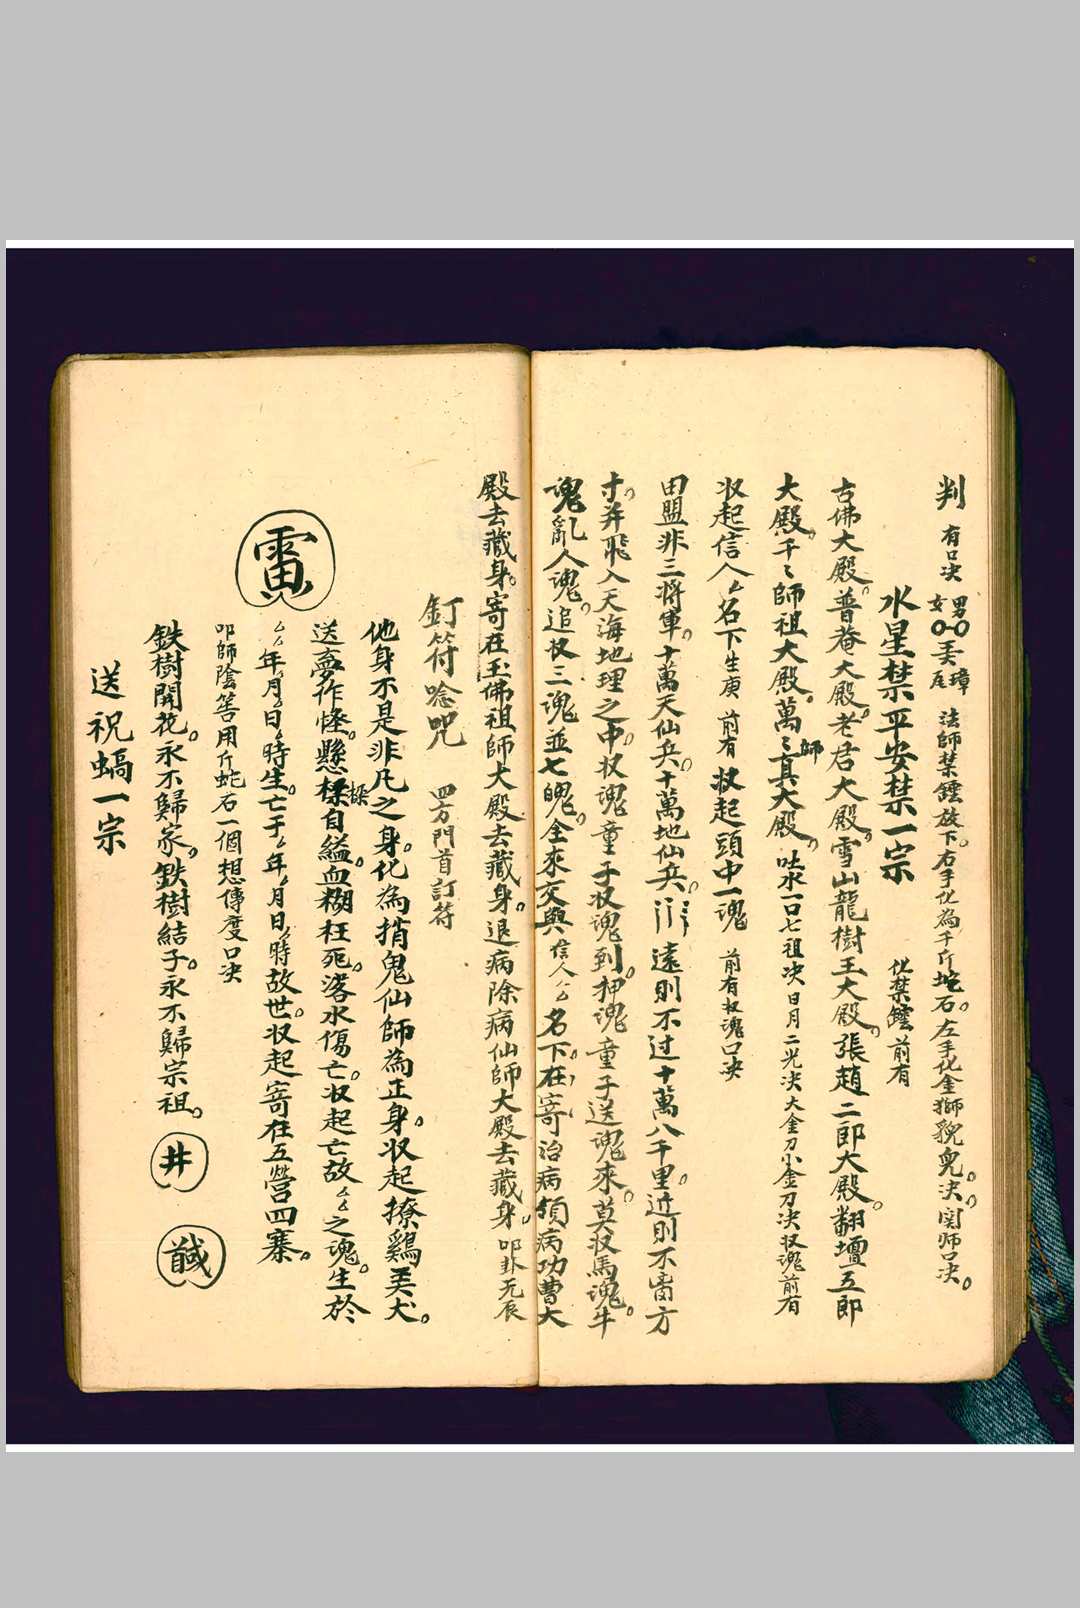 判 有口决 男女 璋 法師禁鐘放下。右手化為千斤坨石。左手化金獅貌皃。决。関师口决。
水星禁平安禁一宗 化禁鐘前有
古佛大殿。普菴大殿。老君大殿。雪山龍樹王大殿。張趙二郎大殿。翻壇五郎
大殿。千〻師祖大殿。萬〻師真大殿。吐水一口七祖决日月二光决大金刀小金刀决収魂前有
収起信人厶名下生庚 前有 収起頭中一魂 前有収魂口决
田盟非三将軍。十萬天仙兵。十萬地仙兵。遠則不过十萬八千里。近則不啇方
寸。并飛入天海地理之中。収魂童子収魂到。押魂童子送魂来。莫収馬魂牛
魂亂人魂。追収三魂並七魄。全來交與信人厶名下。在寄治病領病功曹大
殿去藏身。寄在玉佛祖師大殿去藏身。退病除病仙師大殿去藏身。叩卦无辰
釘符唸咒 四方門首訂符
他身不是非凡之身。化為捎鬼仙師為正身。収起撩鷄弄犬。
送夢作怪。懸樑自縊。血糊枉死。落水傷亡。収起亡故厶厶之魂。生於
厶厶年厶月厶日厶時生。亡于厶年厶月厶日厶時故世。収起寄在五營四寨。
叩師陰筶用斤蛇石一個想傳度口决
鉄樹開花。永不歸家。鉄樹結子。永不歸宗祖。井
送祝蝸一宗